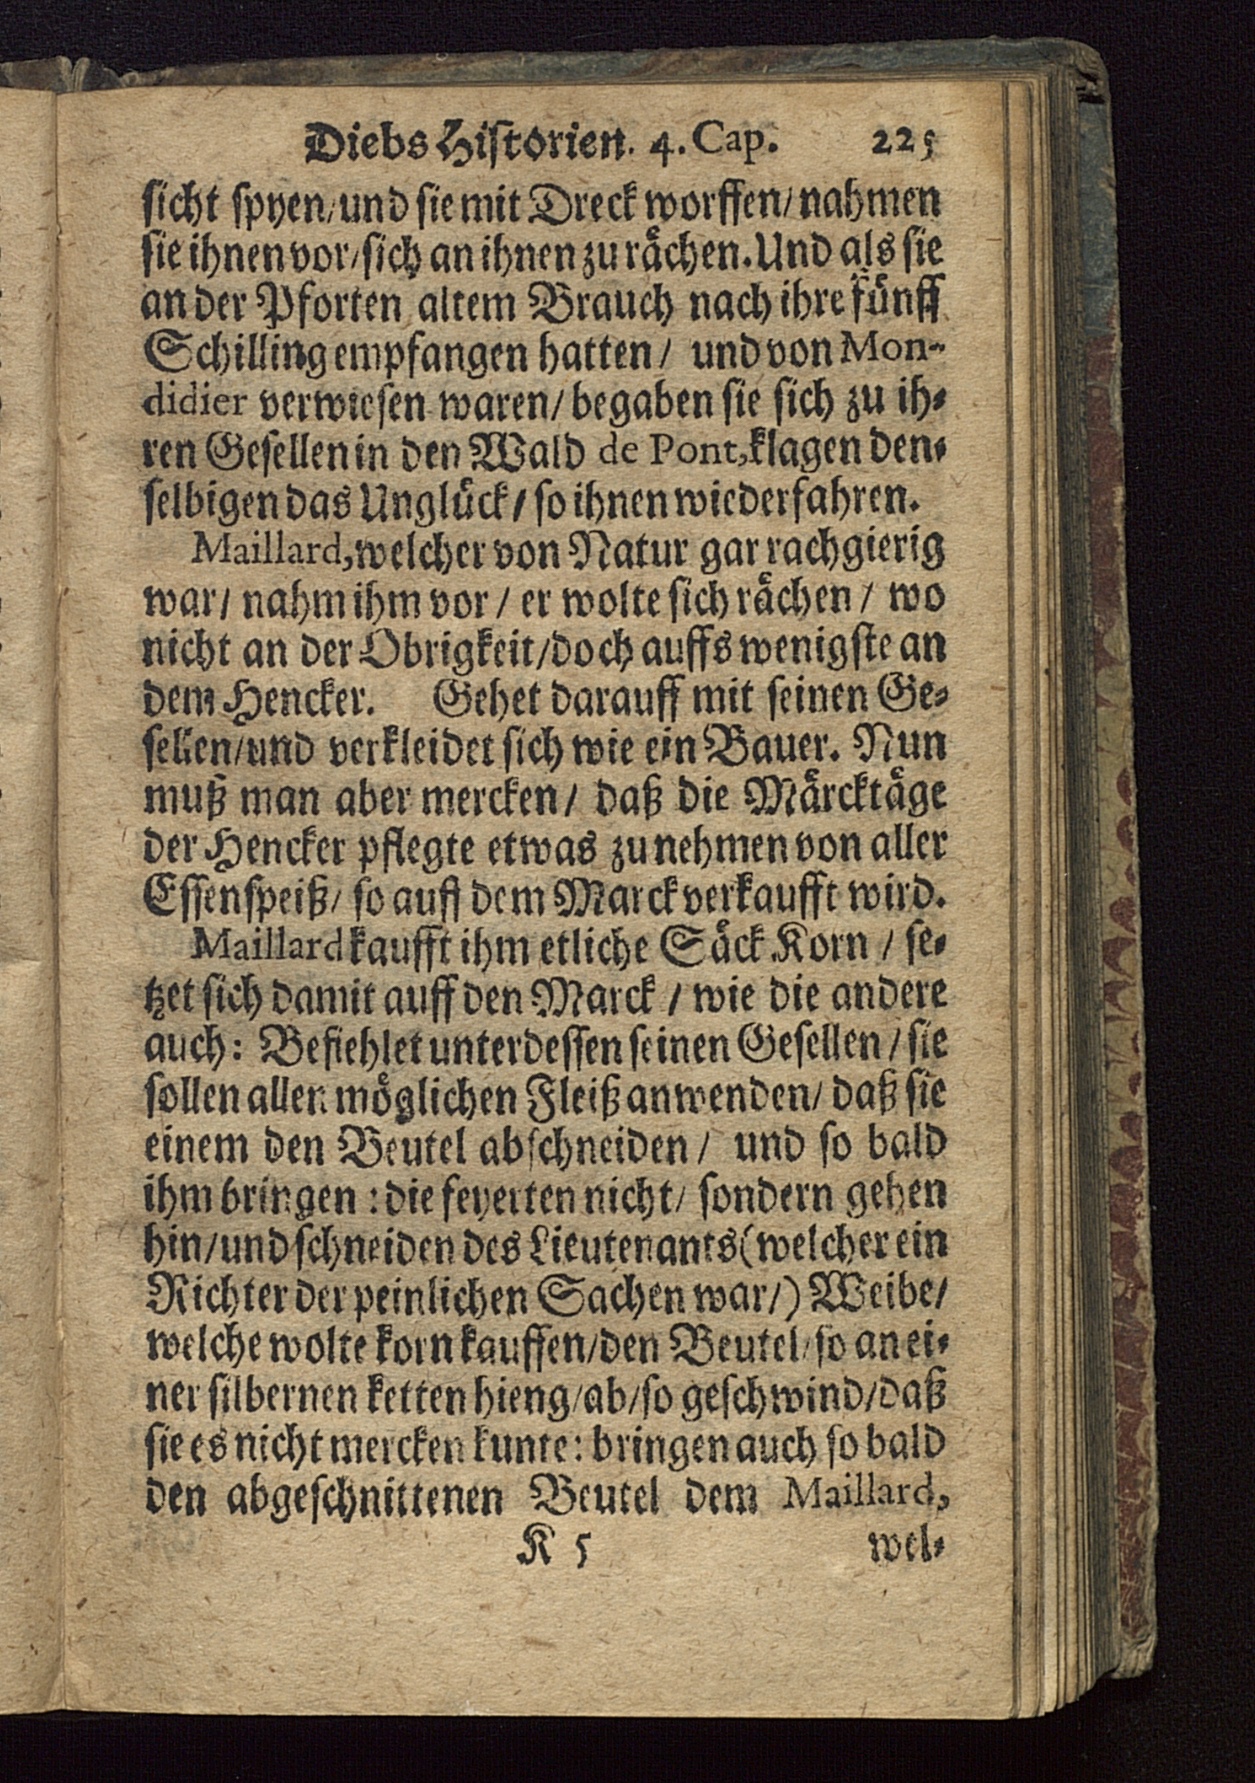 Diebs Historien. 4. Cap. 225
sicht spyen/und sie mit Dreck worffen/nahmen
sie ihnen vor/sich an ihnen zu rächen. Und als sie
an der Pforten altem Brauch nach ihre fünff
Schilling empfangen hatten/ und von Mon-
didier verwiesen waren/begaben sie sich zu ih-
ren Gesellen in den Wald de Pont, klagen den-
selbigen das Unglück/so ihnen wiederfahren.
Maillard, welcher von Natur gar rachgierig
war/ nahm ihm vor/ er wolte sich rächen/ wo
nicht an der Obrigkeit/doch auffs wenigste an
dem Hencker. Gehet darauff mit seinen Ge-
sellen/und verkleidet sich wie ein Bauer. Nun
muß man aber mercken/ daß die Märcktäge
der Hencker pflegte etwas zu nehmen von aller
Essenspeiß/ so auff dem Marck verkaufft wird.
Maillard kaufft ihm etliche Säck Korn/ se-
tzet sich damit auff den Marck/ wie die andere
auch: Befiehlet unterdessen seinen Gesellen/ sie
sollen allen möglichen Fleiß anwenden/ daß sie
einem den Beutel abschneiden/ und so bald
ihm bringen: die feyerten nicht/ sondern gehen
hin/und schneiden des Lieutenants (welcher ein
Richter der peinlichen Sachen war/) Weibe/
welche wolte korn kauffen/den Beutel/so an ei-
ner silbernen ketten hieng/ab/so geschwind/daß
sie es nicht mercken kunte: bringen auch so bald
den abgeschnittenen Beutel dem Maillard,
K 5 wel-